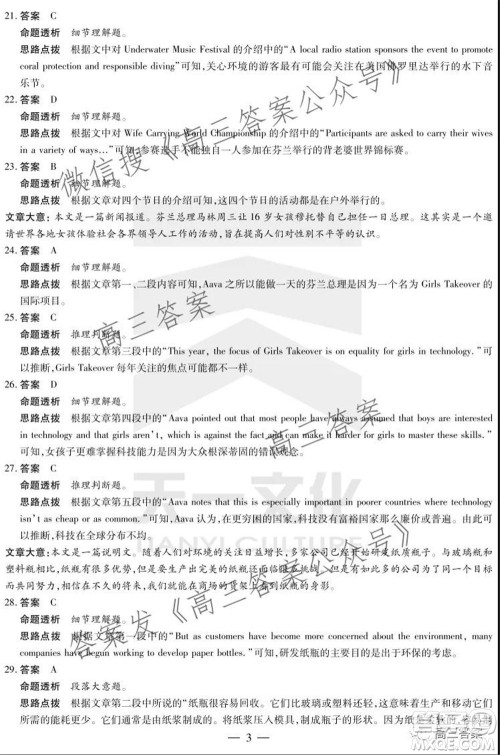 21. 答案 C
命题透析 细节理解题。
思路点拨 根据文中对 Underwater Music Festival 的介绍中的“A local radio station sponsors the event to promote
coral protection and responsible diving”可知,关心环境的游客最有可能会关注在美国佛罗里达举行的水下音
乐节。
22. 答案 D
命题透析 细节理解题。
思路点拨 根据文中对 Wife Carrying World Championship 的介绍中的“Participants are asked to carry their wives
in a variety of ways…”可知,参赛选手不能独自一人参加在芬兰举行的背老婆世界锦标赛。
23. 答案 B
命题透析 细节理解题。
思路点拨 根据文章对四个节日的介绍可知,这四个节日的活动都是在户外举行的。
文章大意:本文是一篇新闻报道。芬兰总理马林周三让 16 岁女孩穆托替自己担任一日总理。这其实是一个邀
请世界各地女孩体验社会各界领导人工作的活动,旨在提高人们对性别不平等的认识。
24. 答案 A
命题透析 细节理解题。
思路点拨 根据文章第一、二段内容可知,Aava 之所以能做一天的芬兰总理是因为一个名为 Girls Takeover 的
国际项目。
25. 答案 C
命题透析 推理判断题。
思路点拨 根据文章第三段中的“This year, the focus of Girls Takeover is on equality for girls in technology.”可
以推断,Girls Takeover 每年关注的焦点可能都不一样。
26. 答案 D
命题透析 细节理解题。
思路点拨 根据文章第四段中的“Aava pointed out that most people have always assumed that boys are interested
in technology and that girls aren't, which is against the fact and can make it harder for girls to master these skills.”
可知,女孩子更难掌握科技能力是因为大众根深蒂固的错误观念。
27. 答案 C
命题透析 推理判断题。
思路点拨 根据文章第五段中的“Aava notes that this is especially important in poorer countries where technology
isn't as cheap or as common.”可知,Aava 认为,在更穷的国家,科技没有富裕国家那么廉价或普遍。由此可
以推断,科技在全球分布不均。
文章大意:本文是一篇说明文。随着人们对环境的关注日益增长,多家公司已经开始研发纸质瓶子。与玻璃瓶和
塑料瓶相比,纸瓶有很多优势,但是要生产出完美的纸瓶还面临很多挑战。但是有如此多的公司为了共同目标
而共同努力,相信在不久的将来,我们就能在商场的货架上看到纸瓶的身影。
28. 答案 C
命题透析 细节理解题。
思路点拨 根据文章第一段中的“But as customers have become more concerned about the environment, many
companies have begun working to develop paper bottles.”可知,研发纸瓶的主要目的是出于环保的考虑。
29. 答案 A
命题透析 段落大意题。
思路点拨 根据文章第二段中所说的“纸瓶很容易回收。它们比玻璃或塑料还轻,这意味着生产和移动它们
所需的能耗更少。它们通常是由纸浆制成的。将纸浆压入模具,制成瓶子的形状。因为
— 3 —
微信搜《高三答案公众号》
高三答案
高三答案
天一文化
TIANYI CULTURE
答案发《高三答案公众号》
高三答案